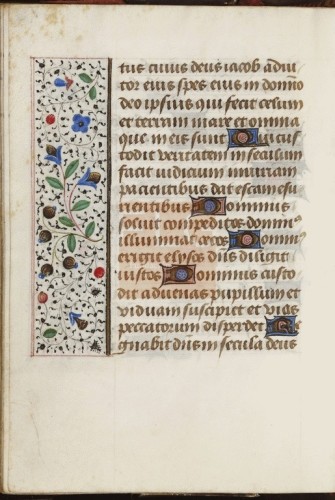 tus cuius deus iacob adiu
tor eius spes eius in domino
deo ipsius qui fecit celum
et terram mare et omnia
que in eis sunt Qui cus
todit veritatem in seculum
facit iudicium iniuriam
pacientibus dat escam esu
rientibus Dominus
soluit compeditos domi
illuminat cecos Domin
erigit elysos dus diligit
iustos Dominus custo
dit aduenas pupillum et
viduam suscipiet et vias
peccatorum disperdet Re
gnabit dns in secula deus